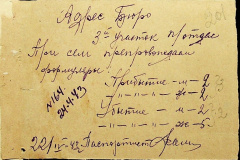 Адрес Бюро
3й участок п/отдел
При сем препровождаем
формуляры:
Прибытие – м – 2
–"– –"– ж – 2
Убытие – м – 2
–"– –"– ж – 5
№164
24.4.43
22/IV-43 Паспортист